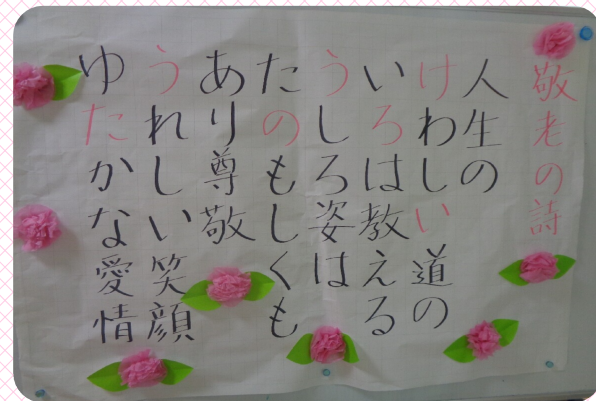 敬老の詩
人生の
けわしい道の
いろは教える
うしろ姿は
たのもしくも
あり尊敬
うれしい笑顔
ゆたかな愛情